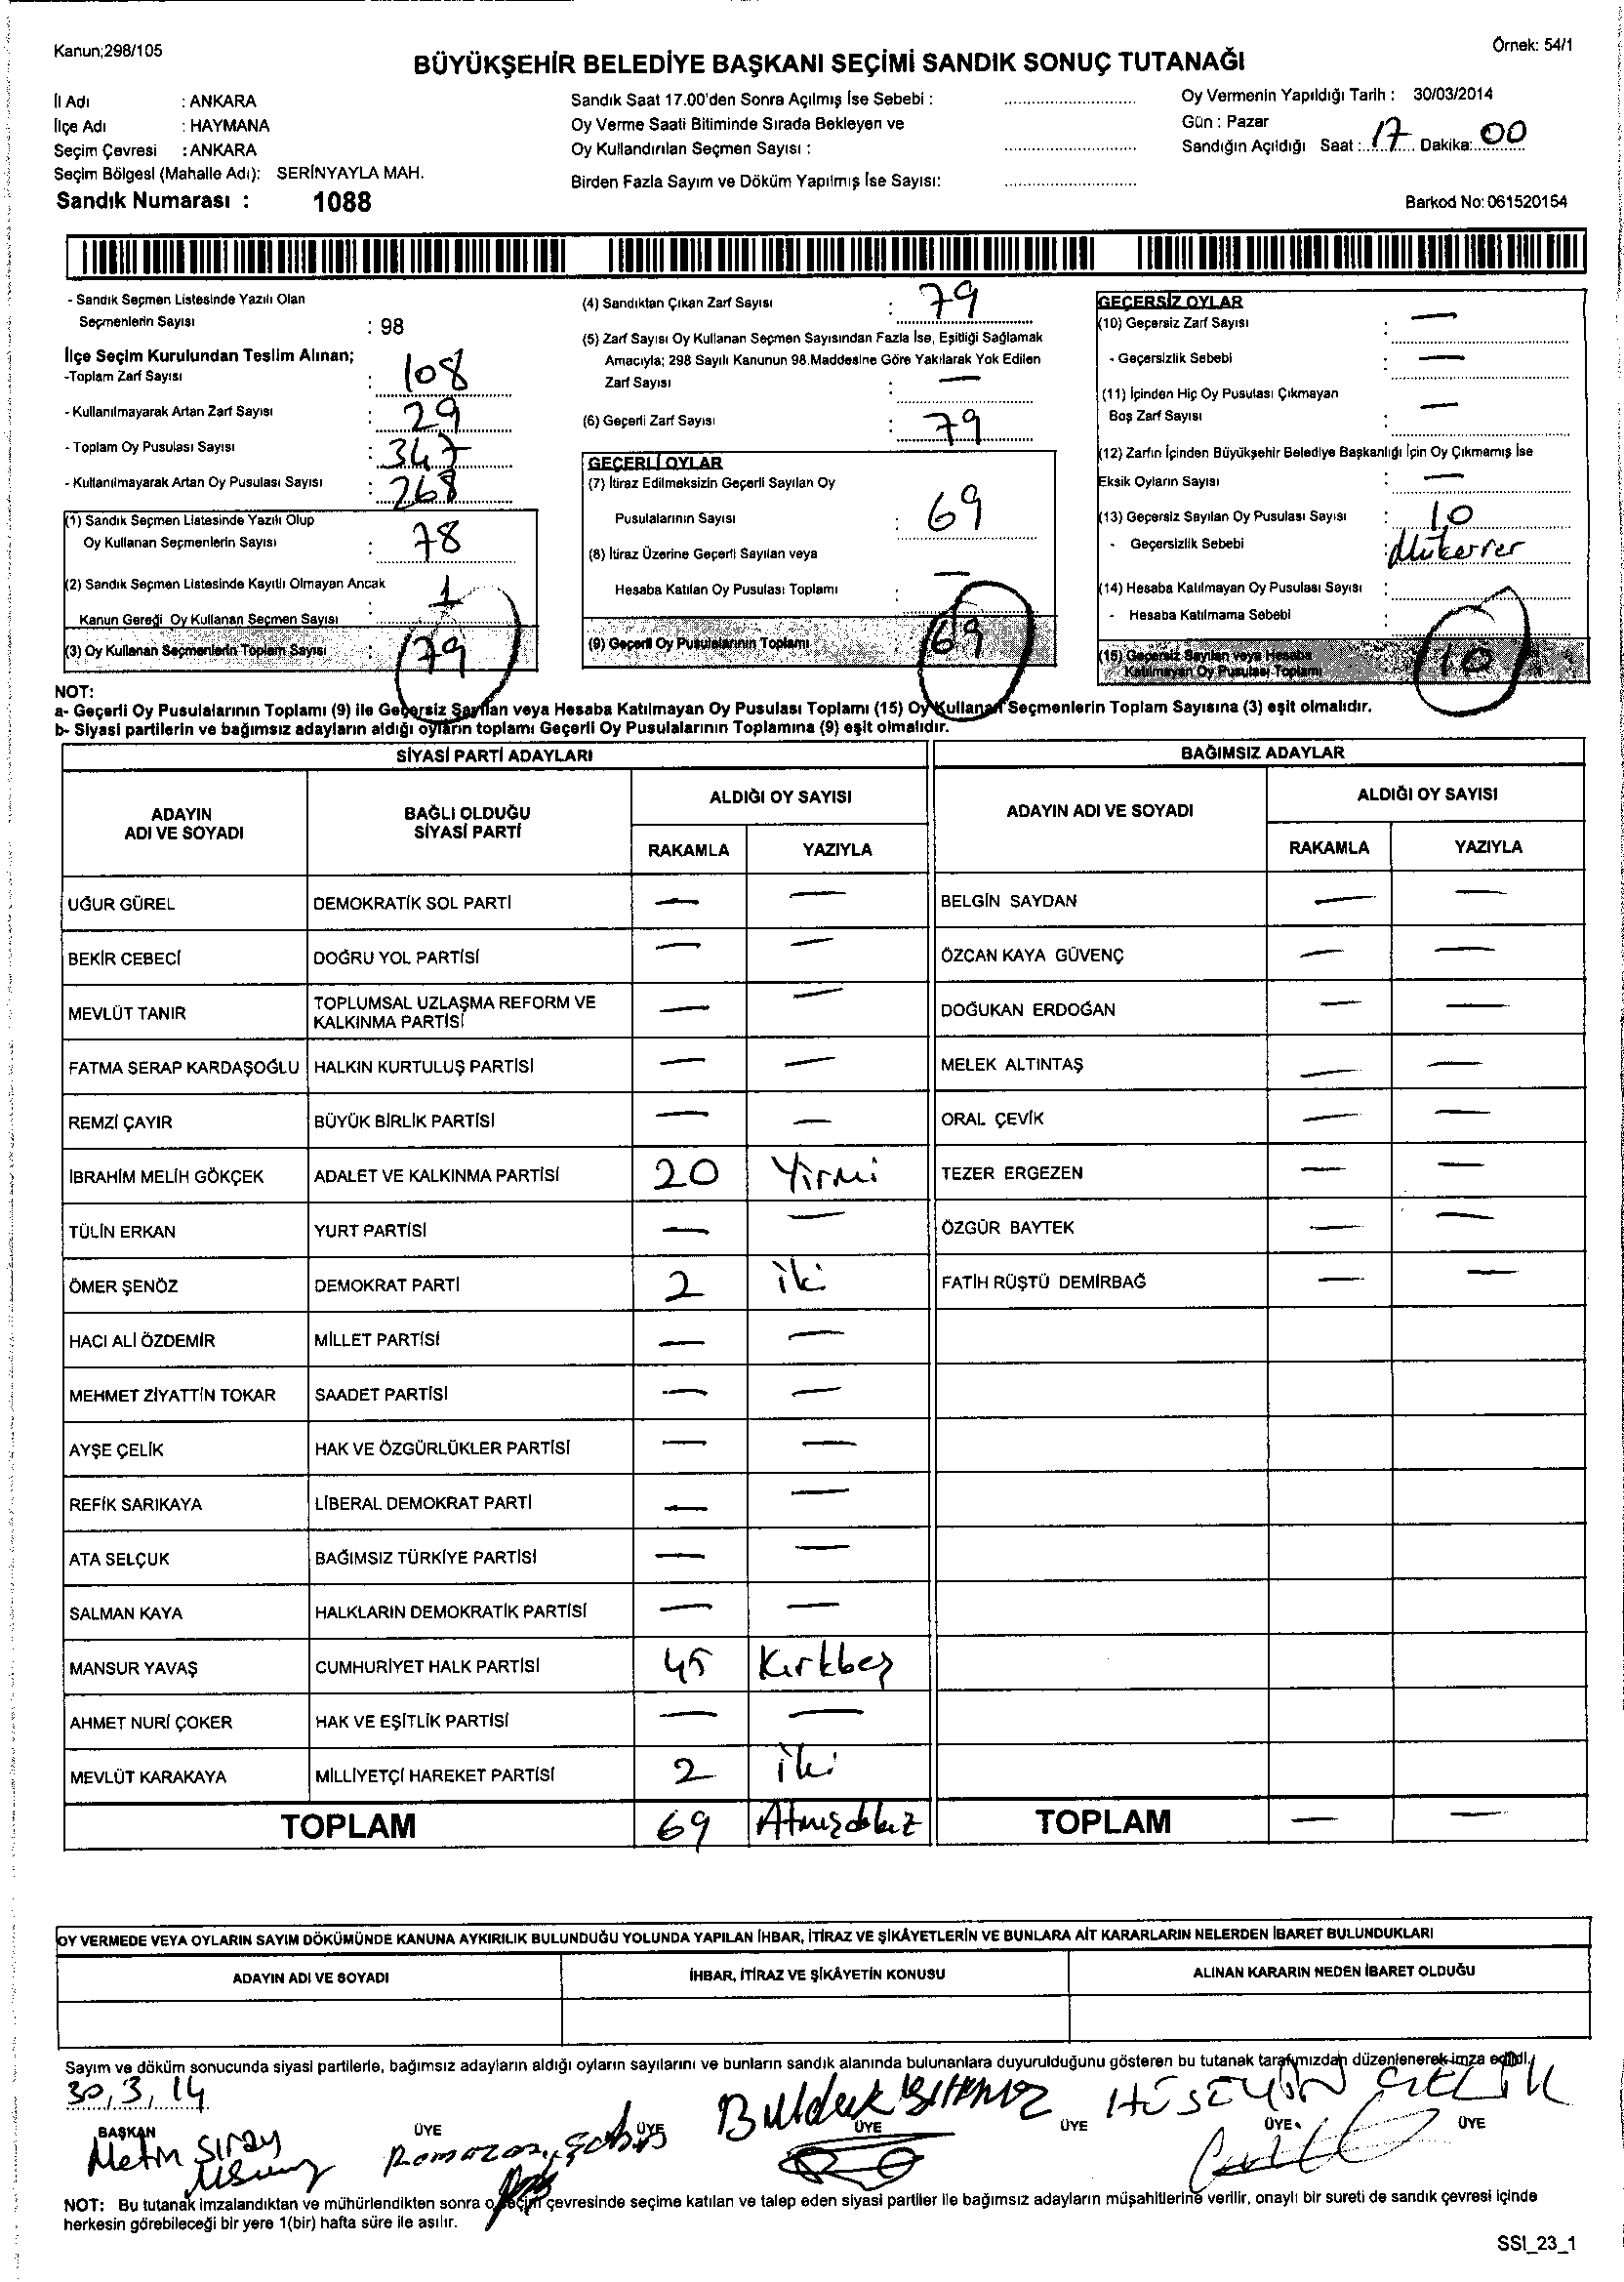 Kanun;298/105
Örnek: 54/1
BÜYÜKŞEHİR BELEDİYE BAŞKANI SEÇİMİ SANDIK SONUÇ TUTANAĞI
İl Adı : ANKARA
İlçe Adı : HAYMANA
Seçim Çevresi : ANKARA
Seçim Bölgesi (Mahalle Adı): SERİNYAYLA MAH.
Sandık Numarası : 1088
Sandık Saat 17.00'den Sonra Açılmış İse Sebebi :
Oy Verme Saati Bitiminde Sırada Bekleyen ve
Oy Kullandırılan Seçmen Sayısı :
Birden Fazla Sayım ve Döküm Yapılmış İse Sayısı:
Oy Vermenin Yapıldığı Tarih : 30/03/2014
Gün : Pazar
Sandığın Açıldığı Saat : 17 Dakika: 00
Barkod No: 061520154
- Sandık Seçmen Listesinde Yazılı Olan
Seçmenlerin Sayısı : 98
İlçe Seçim Kurulundan Teslim Alınan;
-Toplam Zarf Sayısı : 108
- Kullanılmayarak Artan Zarf Sayısı : 29
- Toplam Oy Pusulası Sayısı : 347
- Kullanılmayarak Artan Oy Pusulası Sayısı : 268
(1) Sandık Seçmen Listesinde Yazılı Olup
Oy Kullanan Seçmenlerin Sayısı : 78
(2) Sandık Seçmen Listesinde Kayıtlı Olmayan Ancak
Kanun Gereği Oy Kullanan Seçmen Sayısı : 1
(3) Oy Kullanan Seçmenlerin Toplam Sayısı : 79
(4) Sandıktan Çıkan Zarf Sayısı : 79
(5) Zarf Sayısı Oy Kullanan Seçmen Sayısından Fazla İse, Eşitliği Sağlamak
Amacıyla; 298 Sayılı Kanunun 98.Maddesine Göre Yakılarak Yok Edilen
Zarf Sayısı : —
(6) Geçerli Zarf Sayısı : 79
GEÇERLİ OYLAR
(7) İtiraz Edilmeksizin Geçerli Sayılan Oy
Pusulalarının Sayısı : 69
(8) İtiraz Üzerine Geçerli Sayılan veya
Hesaba Katılan Oy Pusulası Toplamı : —
(9) Geçerli Oy Pusulalarının Toplamı : 69
GEÇERSİZ OYLAR
(10) Geçersiz Zarf Sayısı : —
- Geçersizlik Sebebi : —
(11) İçinden Hiç Oy Pusulası Çıkmayan
Boş Zarf Sayısı : —
(12) Zarfın İçinden Büyükşehir Belediye Başkanlığı İçin Oy Çıkmamış İse
Eksik Oyların Sayısı : —
(13) Geçersiz Sayılan Oy Pusulası Sayısı : 10
- Geçersizlik Sebebi : Mükerrer
(14) Hesaba Katılmayan Oy Pusulası Sayısı :
- Hesaba Katılmama Sebebi :
(15) Geçersiz Sayılan veya Hesaba
Katılmayan Oy Pusulası Toplamı : 10
NOT:
a- Geçerli Oy Pusulalarının Toplamı (9) ile Geçersiz Sayılan veya Hesaba Katılmayan Oy Pusulası Toplamı (15) Oy Kullanan Seçmenlerin Toplam Sayısına (3) eşit olmalıdır.
b- Siyasi partilerin ve bağımsız adayların aldığı oyların toplamı Geçerli Oy Pusulalarının Toplamına (9) eşit olmalıdır.
SİYASİ PARTİ ADAYLARI
ADAYIN
ADI VE SOYADI
BAĞLI OLDUĞU
SİYASİ PARTİ
ALDIĞI OY SAYISI
RAKAMLA YAZIYLA
UĞUR GÜREL DEMOKRATİK SOL PARTİ — —
BEKİR CEBECİ DOĞRU YOL PARTİSİ — —
MEVLÜT TANIR TOPLUMSAL UZLAŞMA REFORM VE
KALKINMA PARTİSİ — —
FATMA SERAP KARDAŞOĞLU HALKIN KURTULUŞ PARTİSİ — —
REMZİ ÇAYIR BÜYÜK BİRLİK PARTİSİ — —
İBRAHİM MELİH GÖKÇEK ADALET VE KALKINMA PARTİSİ 20 Yirmi
TÜLİN ERKAN YURT PARTİSİ — —
ÖMER ŞENÖZ DEMOKRAT PARTİ 2 iki
HACI ALİ ÖZDEMİR MİLLET PARTİSİ — —
MEHMET ZİYATTİN TOKAR SAADET PARTİSİ — —
AYŞE ÇELİK HAK VE ÖZGÜRLÜKLER PARTİSİ — —
REFİK SARIKAYA LİBERAL DEMOKRAT PARTİ — —
ATA SELÇUK BAĞIMSIZ TÜRKİYE PARTİSİ — —
SALMAN KAYA HALKLARIN DEMOKRATİK PARTİSİ — —
MANSUR YAVAŞ CUMHURİYET HALK PARTİSİ 45 Kırkbeş
AHMET NURİ ÇOKER HAK VE EŞİTLİK PARTİSİ — —
MEVLÜT KARAKAYA MİLLİYETÇİ HAREKET PARTİSİ 2 iki
TOPLAM 69
BAĞIMSIZ ADAYLAR
ADAYIN ADI VE SOYADI
ALDIĞI OY SAYISI
RAKAMLA YAZIYLA
BELGİN SAYDAN — —
ÖZCAN KAYA GÜVENÇ — —
DOĞUKAN ERDOĞAN — —
MELEK ALTINTAŞ — —
ORAL ÇEVİK — —
TEZER ERGEZEN — —
ÖZGÜR BAYTEK — —
FATİH RÜŞTÜ DEMİRBAĞ — —
TOPLAM — —
OY VERMEDE VEYA OYLARIN SAYIM DÖKÜMÜNDE KANUNA AYKIRILIK BULUNDUĞU YOLUNDA YAPILAN İHBAR, İTİRAZ VE ŞİKÂYETLERİN VE BUNLARA AİT KARARLARIN NELERDEN İBARET BULUNDUKLARI
ADAYIN ADI VE SOYADI İHBAR, İTİRAZ VE ŞİKÂYETİN KONUSU ALINAN KARARIN NEDEN İBARET OLDUĞU
Sayım ve döküm sonucunda siyasi partilerle, bağımsız adayların aldığı oyların sayılarını ve bunların sandık alanında bulunanlara duyurulduğunu gösteren bu tutanak tarafımızdan düzenlenerek imza edildi.
30,3,14
BAŞKAN ÜYE ÜYE ÜYE ÜYE ÜYE ÜYE
Metin Ramazan HÜSEYİN ÇELİK
NOT: Bu tutanak imzalandıktan ve mühürlendikten sonra o seçim çevresinde seçime katılan ve talep eden siyasi partiler ile bağımsız adayların müşahitlerine verilir, onaylı bir sureti de sandık çevresi içinde
herkesin görebileceği bir yere 1(bir) hafta süre ile asılır.
SSI_23_1